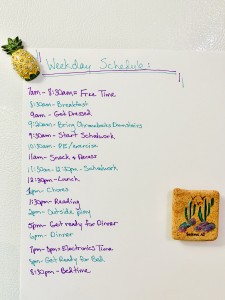 Weekday Schedule:
7am - 8:30am = Free Time
8:30am - Breakfast
9am - Get Dressed
9:20am - Bring Chromebooks Downstairs
9:30am - Start Schoolwork
10:30am - P.E./exercise
11am - Snack & Recess
11:30am - 12:30pm - Schoolwork
12:30pm - Lunch
1pm - Chores
1:30pm - Reading
2pm - Outside play
5pm - Get ready for Dinner
6pm - Dinner
7pm - 8pm = Electronics Time
8pm - Get Ready for Bed
8:30pm - Bedtime